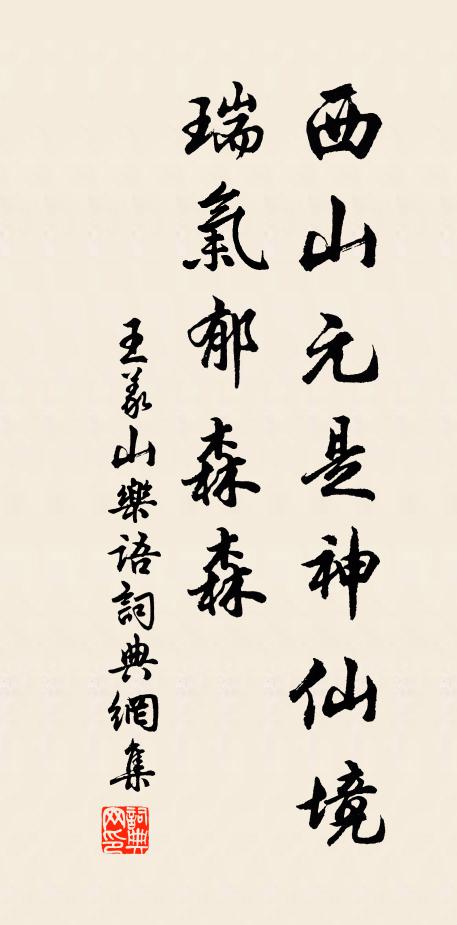 西山元是神仙境
瑞氣郁森森
王义山樂語詞典網集
詞典网印